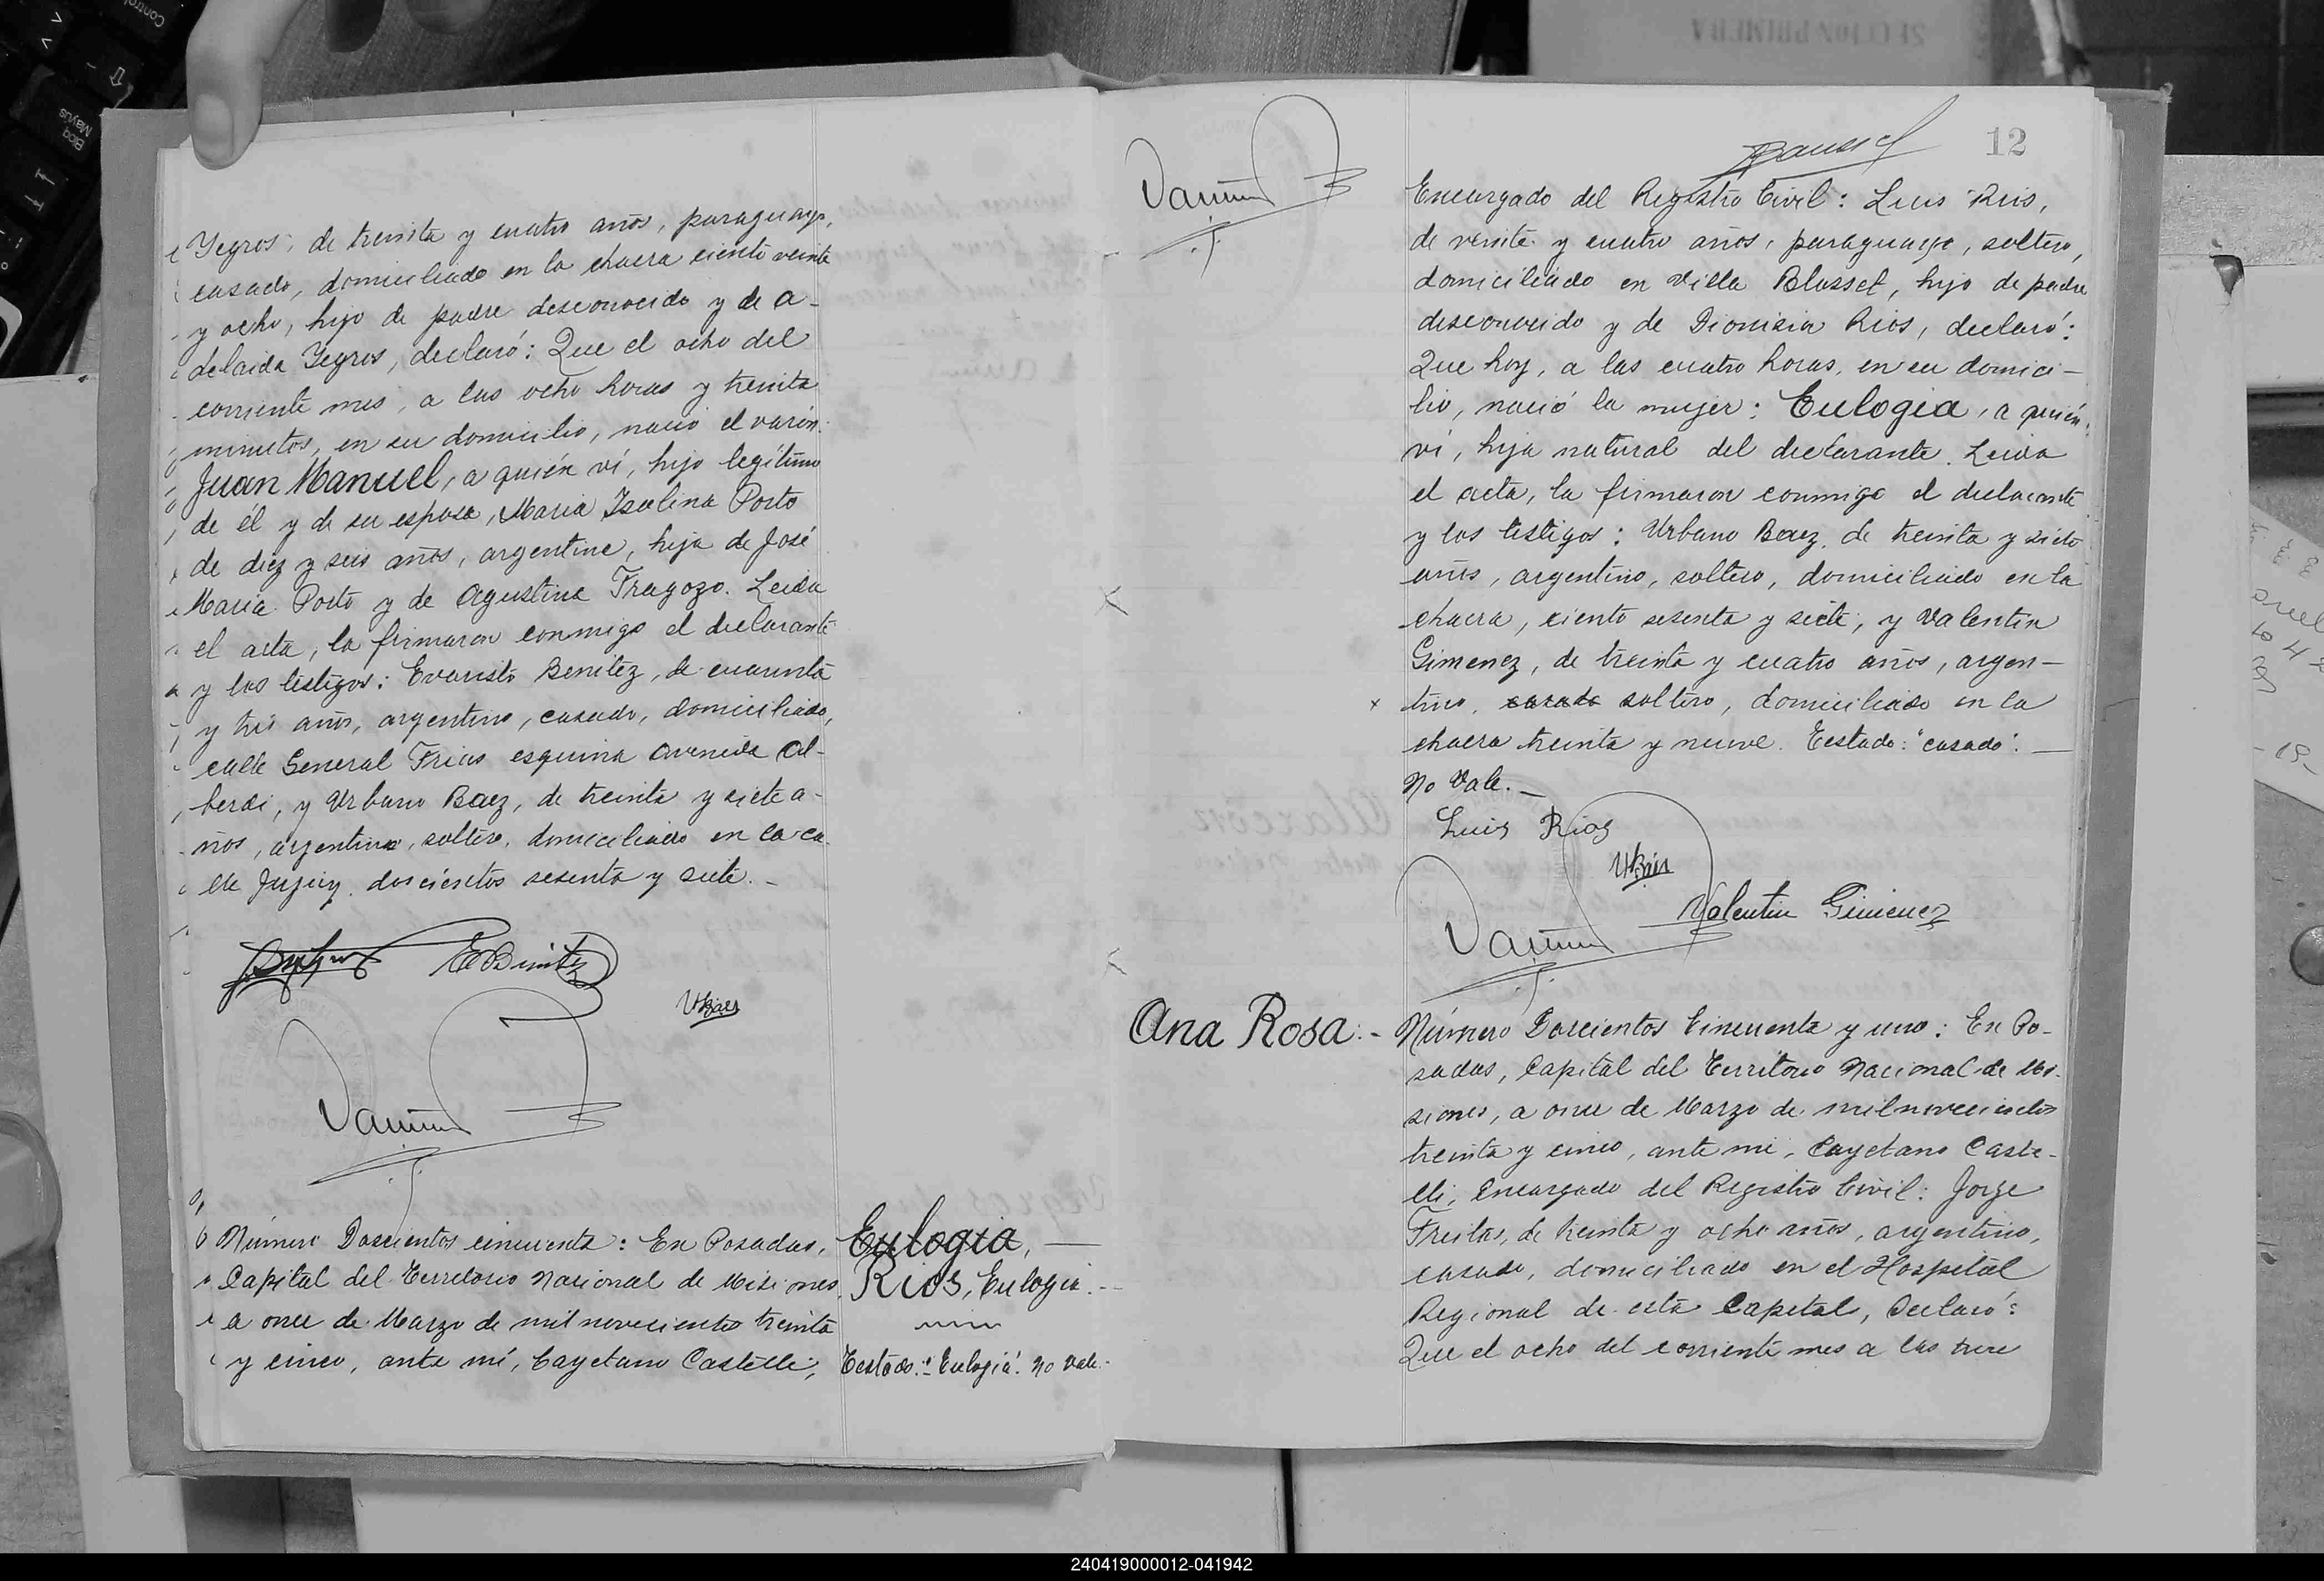 Yegros, de treinta y cuatro años, paraguayo,
casado, domiciliado en la chacra ciento veinte
y ocho, hijo de padre desconocido y de A-
delaida Yegros, declaró: Que el ocho del
corriente mes, a las ocho horas y treinta
minutos, en su domicilio, nació el varón:
Juan Manuel, a quién ví, hijo legítimo
de él y de su esposa, Maria Isolina Porto
de diez y seis años, argentina, hija de José
Maria Porto y de Agustina Fragozo. Leida
el acta, la firmaron conmigo el declarante
y los testigos: Evaristo Benitez, de cuarenta
y tres años, argentino, casado, domiciliado,
calle General Frias esquina Avenida Al-
berdi, y Urbano Baez, de treinta y siete a-
ños, argentino, soltero, domiciliado en la ca-
lle Jujuy doscientos sesenta y siete.-
E Benitez
UBaez
Número Doscientos cincuenta: En Posadas,
Capital del Territorio Nacional de Misiones,
a once de Marzo de mil novecientos treinta
y cinco, ante mí, Cayetano Castelli,
Eulogia,
Rios, Eulogia.-
Testado: "Eulogia". No vale.-
12
Encargado del Registro Civil: Luis Rios,
de veinte y cuatro años, paraguayo, soltero,
domiciliado en Villa Blosset, hijo de padre
desconocido y de Dionisia Rios, declaró:
Que hoy, a las cuatro horas, en su domici-
lio, nació la mujer: Eulogia, a quién
ví, hija natural del declarante. Leida
el acta, la firmaron conmigo el declarante
y los testigos: Urbano Baez, de treinta y siete
años, argentino, soltero, domiciliado en la
chacra, ciento sesenta y siete, y Valentin
Gimenez, de treinta y cuatro años, argen-
tino, casado soltero, domiciliado en la
chacra treinta y nueve. Testado: "casado".
No Vale.-
Luis Rios
UBaez
Valentin Gimenez
Ana Rosa:-
Número Doscientos Cincuenta y uno: En Po-
sadas, Capital del Territorio Nacional de Mi-
siones, a once de Marzo de mil novecientos
treinta y cinco, ante mí, Cayetano Caste-
lli, Encargado del Registro Civil: Jorge
Freitas, de treinta y ocho años, argentino,
casado, domiciliado en el Hospital
Regional de esta Capital, Declaró:
Que el ocho del corriente mes a las trece
240419000012-041942